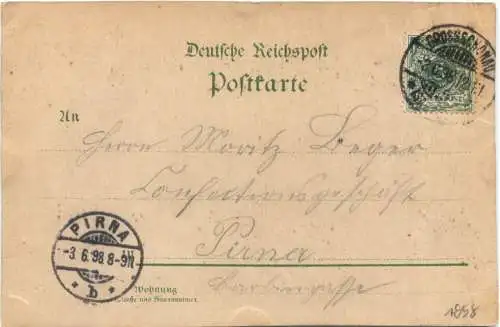 Deutsche Reichspost
Postkarte
GROSSSCHÖNAU
An
Herrn Moritz Beger
Confectionsgeschäft
Pirna
PIRNA
-3 6.98 8-9N
* b *
Wohnung
(Straße und Hausnummer)
1898